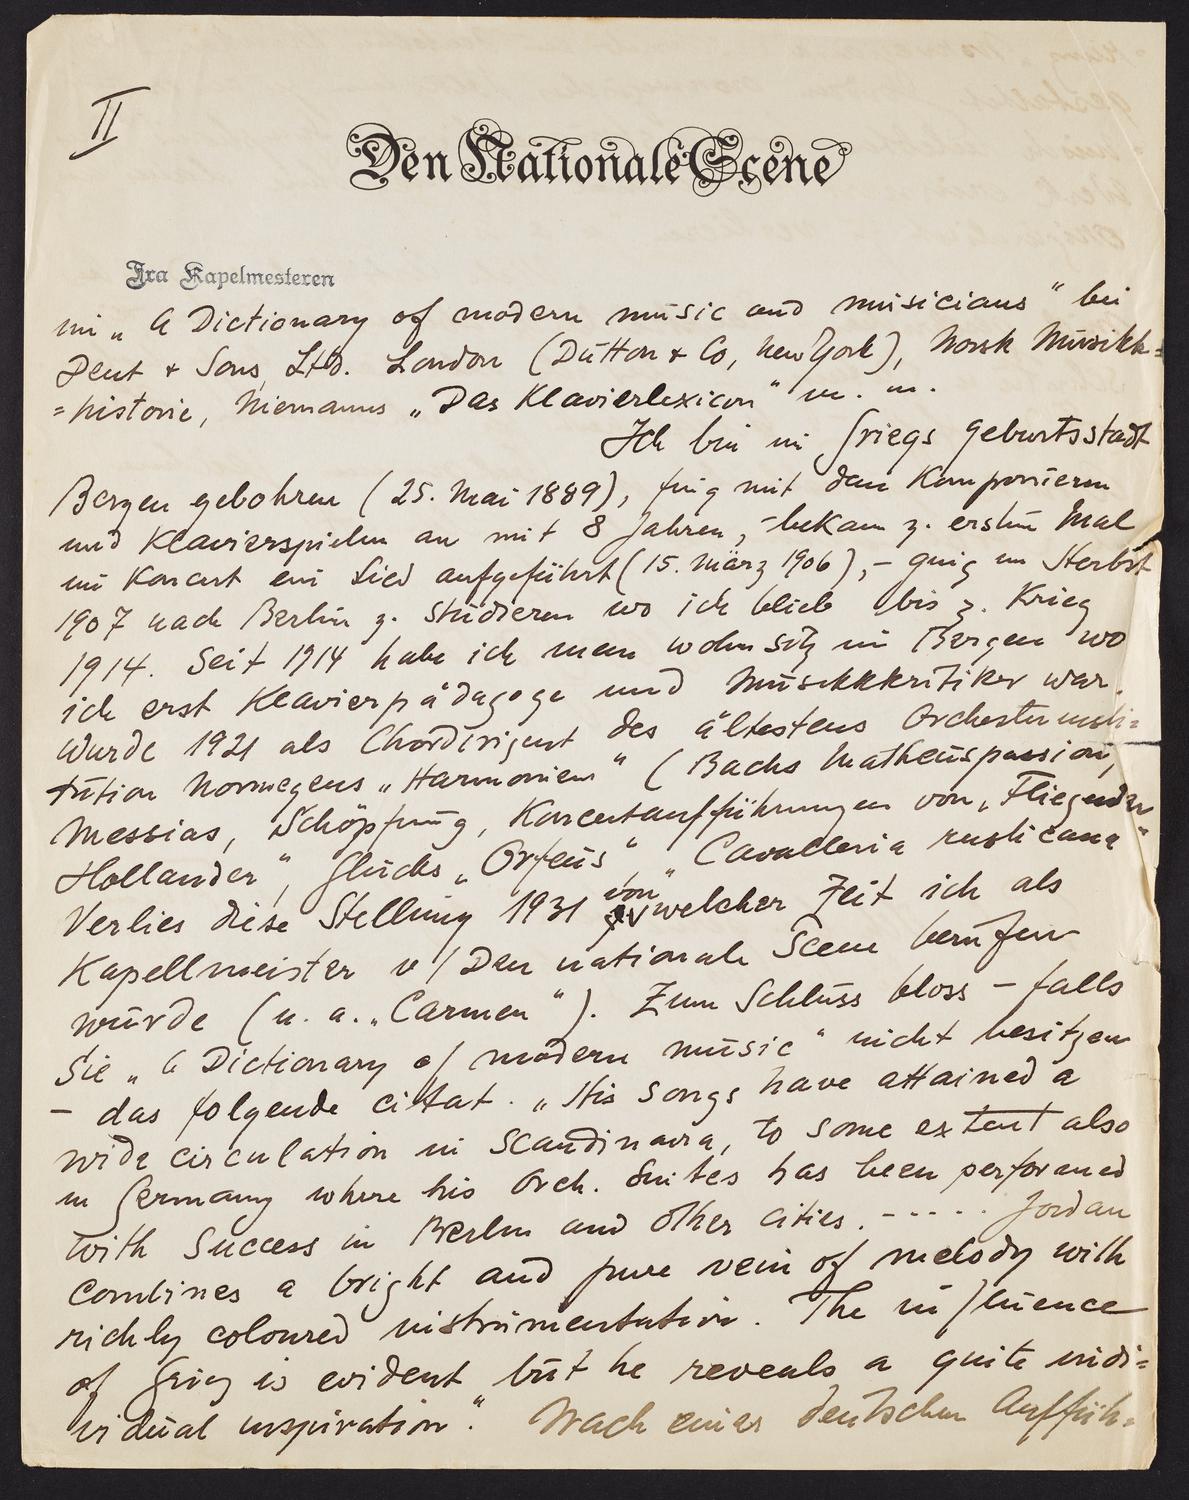 II
Den Nationale Scene
Fra Kapelmesteren
im „A Dictionary of modern music and musicians" bei
Dent & Sons, Ltd. London (Dutton & Co, New York), Norsk Musikk=
=historie, Niemanns „Das Klavierlexicon" m. m.
Ich bin in Griegs Geburtsstadt
Bergen gebohren (25. Mai 1889), fing mit dem Komponieren
und Klavierspielen an mit 8 Jahren, - bekam z. ersten Mal
im Koncert ein Lied aufgeführt (15. März 1906), - ging im Herbst
1907 nach Berlin z. Studieren wo ich blieb bis z. Krieg
1914. Seit 1914 habe ich mein wohnsitz in Bergen wo
ich erst Klavierpädagoge und Musikkkritiker war.
Wurde 1921 als Chordirigent des ältestens Orchesterinsti=
tution Norwegens „Harmonien" (Bachs Matheuspassion,
Messias, Schöpfung, Koncertaufführungen von „Fliegender
Hollander", Glucks „Orfeus" „Cavalleria rusticana"
Verlies diese Stellung 1931 von welcher Zeit ich als
Kapellmeister v/ Den nationale Scene berufen
wurde (u. a. „Carmen"). Zum Schluss bloss - falls
Sie „A Dictionary of modern music" nicht besitzen
- das folgende citat. „His songs have attained a
wide circulation in Scandinavia, to some extent also
in Germany where his Orch. Suites has been performed
with Success in Berlin and other cities. - - - - - Jordan
combines a bright and pure vein of melody with
richly coloured instrumentation. The influence
of Grieg is evident but he reveals a quite indi=
vidual inspiration". Nach einer deutschen Auffüh=